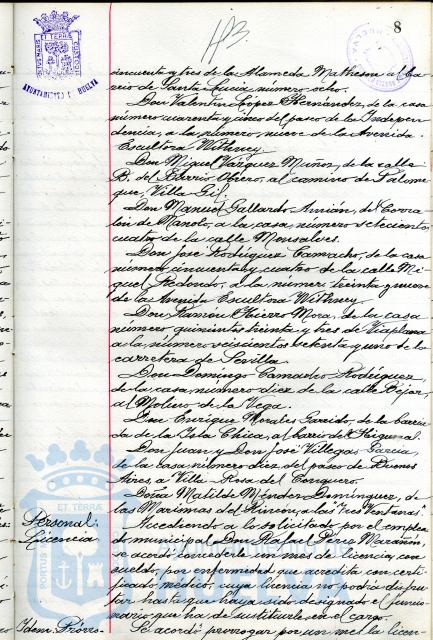 113
8
AYUNTAMIENTO DE HUELVA
cincuenta y tres de la Alameda Matheson al ba-
rrio de Santa Lucia, número ocho.
Don Valentin López Hernández, de la casa
número cuarenta y cinco del paseo de la Indepen-
dencia, a la número nueve de la Avenida
Escultora Withney.
Don Miguel Vázquez Muñoz, de la calle
B. del Barrio Obrero, al camino de Palome-
que, Villa Gil.
Don Manuel Gallardo Amián, del Corra-
lón de Manolo, a la casa número setecientos
cuatro de la calle Monsalves.
Don José Rodriguez Camacho, de la casa
número cincuenta y cuatro de la calle Mi-
guel Redondo, a la número treinta y nueve
de la Avenida Escultora Withney.
Don Ramón Hierro Mora, de la casa
número quinientos treinta y tres de Viaplana
a la número seiscientos setenta y uno de la
carretera de Sevilla.
Don Domingo Camacho Rodriguez,
de la casa número diez de la calle Béjar,
al Molino de la Vega.
Don Enrique Morales Garrido, de la barria-
da de la Isla Chica, al barrio del Higueral.
Don Juan y Don José Villegas Garcia,
de la casa número diez del paseo de Buenos
Aires, a Villa Rosa del Conquero.
Doña Matilde Méndez Dominguez, de
las Marismas del Rincón, a las "Tres Ventanas".
Personal:
Licencia
Accediendo a lo solicitado por el emplea-
do municipal Don Rafael Pérez Marañón,
se acordó concederle un mes de licencia, con
sueldo, por enfermedad que acredita con certi-
ficado médico, cuya licencia no podrá disfru-
tar hasta que haya sido designado el funcio-
nario que ha de sustituirle en el cargo.
Idem: Prórro-
Se acordó prorrogar por un mes la licen-
ET TERRA